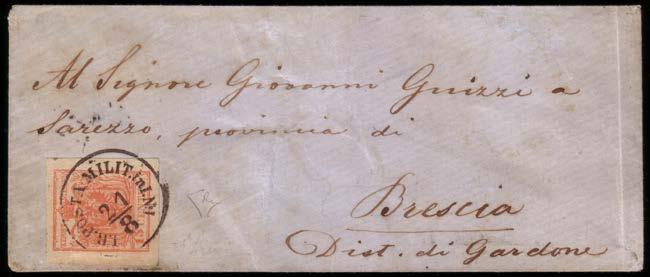 Al Signore Giovanni Guizzi a
Sarezzo, provincia di
Brescia
Dist. di Gardone
I.R. POSTA MILIT.
21/8